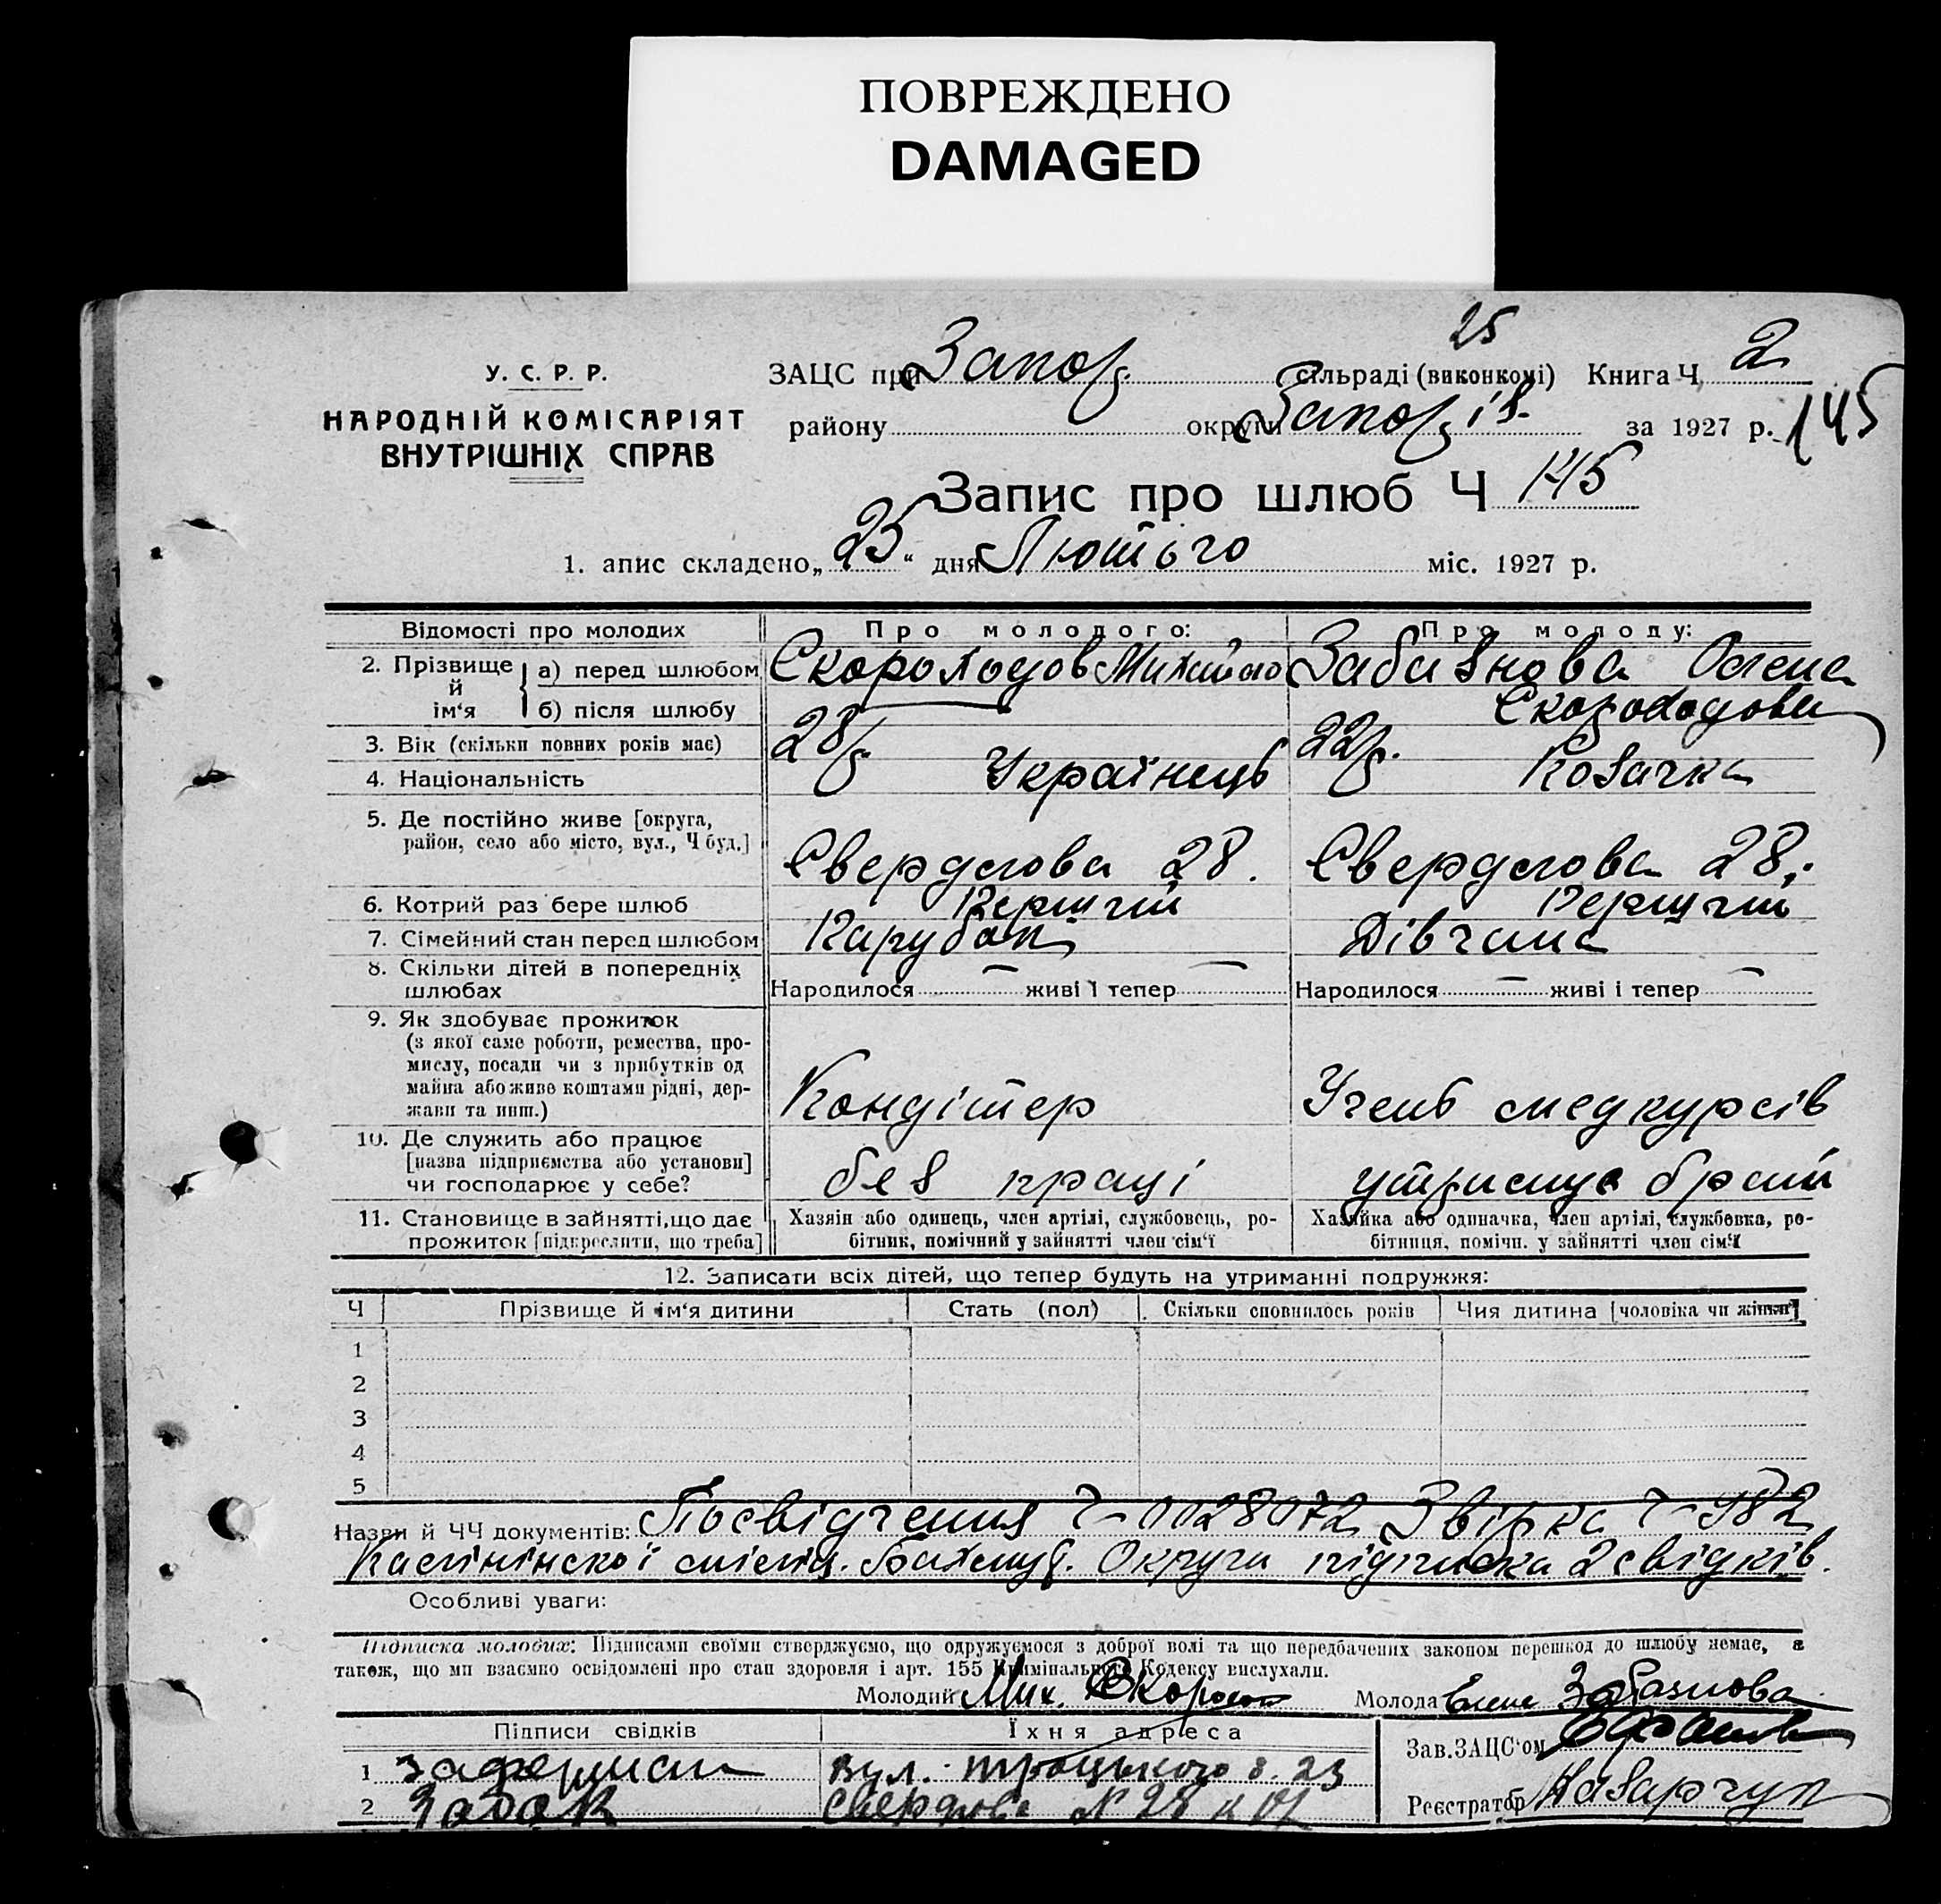 ПОВРЕЖДЕНО
DAMAGED
25
У. С. Р. Р.
НАРОДНІЙ КОМІСАРІЯТ
ВНУТРІШНІХ СПРАВ
ЗАЦС при Запор. сільраді (виконкомі) Книга Ч. 2
району округи Запоріз. за 1927 р. 145
Запис про шлюб Ч 145
1. апис складено „25“ дня Лютого міс. 1927 р.
Відомості про молодих Про молодого: Про молоду:
2. Прізвище й ім‘я а) перед шлюбом Скороходов Михайло Забазнова Олена
б) після шлюбу Скороходова
3. Вік (скільки повних років має) 28 р. 22 р.
4. Національність Українець Козачка
5. Де постійно живе [округа,
район, село або місто, вул., Ч буд.] Свердлова 28. Свердлова 28.
6. Котрий раз бере шлюб Перший Перший
7. Сімейний стан перед шлюбом Парубок Дівчина
8. Скільки дітей в попередніх
шлюбах Народилося — живі і тепер — Народилося — живі і тепер —
9. Як здобуває прожиток
(з якої саме роботи, ремества, про-
мислу, посади чи з прибутків од
майна або живе коштами рідні, дер-
жави та инш.) Кондітер Учень медкурсів
10. Де служить або працює
[назва підприємства або установи]
чи господарює у себе? без праці утримує брат
11. Становище в зайнятті, що дає
прожиток [підкреслити, що треба]
Хазяін або одинець, член артілі, службовець, ро-
бітник, помічний у зайнятті член сім‘ї
Хазяйка або одиначка, член артілі, службовка, ро-
бітниця, помічн. у зайнятті член сім‘ї
12. Записати всіх дітей, що тепер будуть на утриманні подружжя:
Ч Прізвище й ім‘я дитини Стать (пол) Скільки сповнилось років Чия дитина [чоловіка чи жінки]
1
2
3
4
5
Назви й ЧЧ документів: Посвідчення Ч-0028072 Звірка Ч-982
Калінінської міліц. Бахмут. Округи підписка 2 свідків.
Особливі уваги:
Підписка молодих: Підписами своїми стверджуємо, що одружуємося з доброї волі та що передбачених законом перешкод до шлюбу немає, а
також, що ми взаємно освідомлені про стан здоровля і арт. 155 Кримінального Кодексу вислухали.
Молодий Мих. Молода Елена Забазнова
Підписи свідків Їхня адреса
Зав. ЗАЦС‘ом
1 вул. Троцького б. 23
2 Свердлова N 28
Реєстратор Назарчук